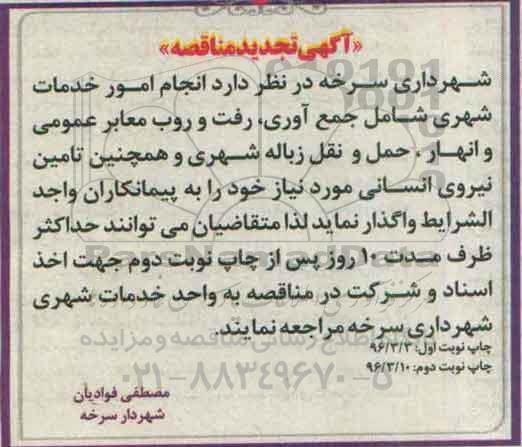 «آگهی تجدید مناقصه»
شهرداری سرخه در نظر دارد انجام امور خدمات
شهری شامل جمع آوری، رفت و روب معابر عمومی
و انهار ، حمل و نقل زباله شهری و همچنین تامین
نیروی انسانی مورد نیاز خود را به پیمانکاران واجد
الشرایط واگذار نماید لذا متقاضیان می توانند حداکثر
ظرف مدت ۱۰ روز پس از چاپ نوبت دوم جهت اخذ
اسناد و شرکت در مناقصه به واحد خدمات شهری
شهرداری سرخه مراجعه نمایند.
چاپ نوبت اول: ۹۶/۳/۳
چاپ نوبت دوم: ۹۶/۳/۱۰
مصطفی فوادیان
شهردار سرخه
۰۲۱-۸۸۳۴۹۶۷۰-۵